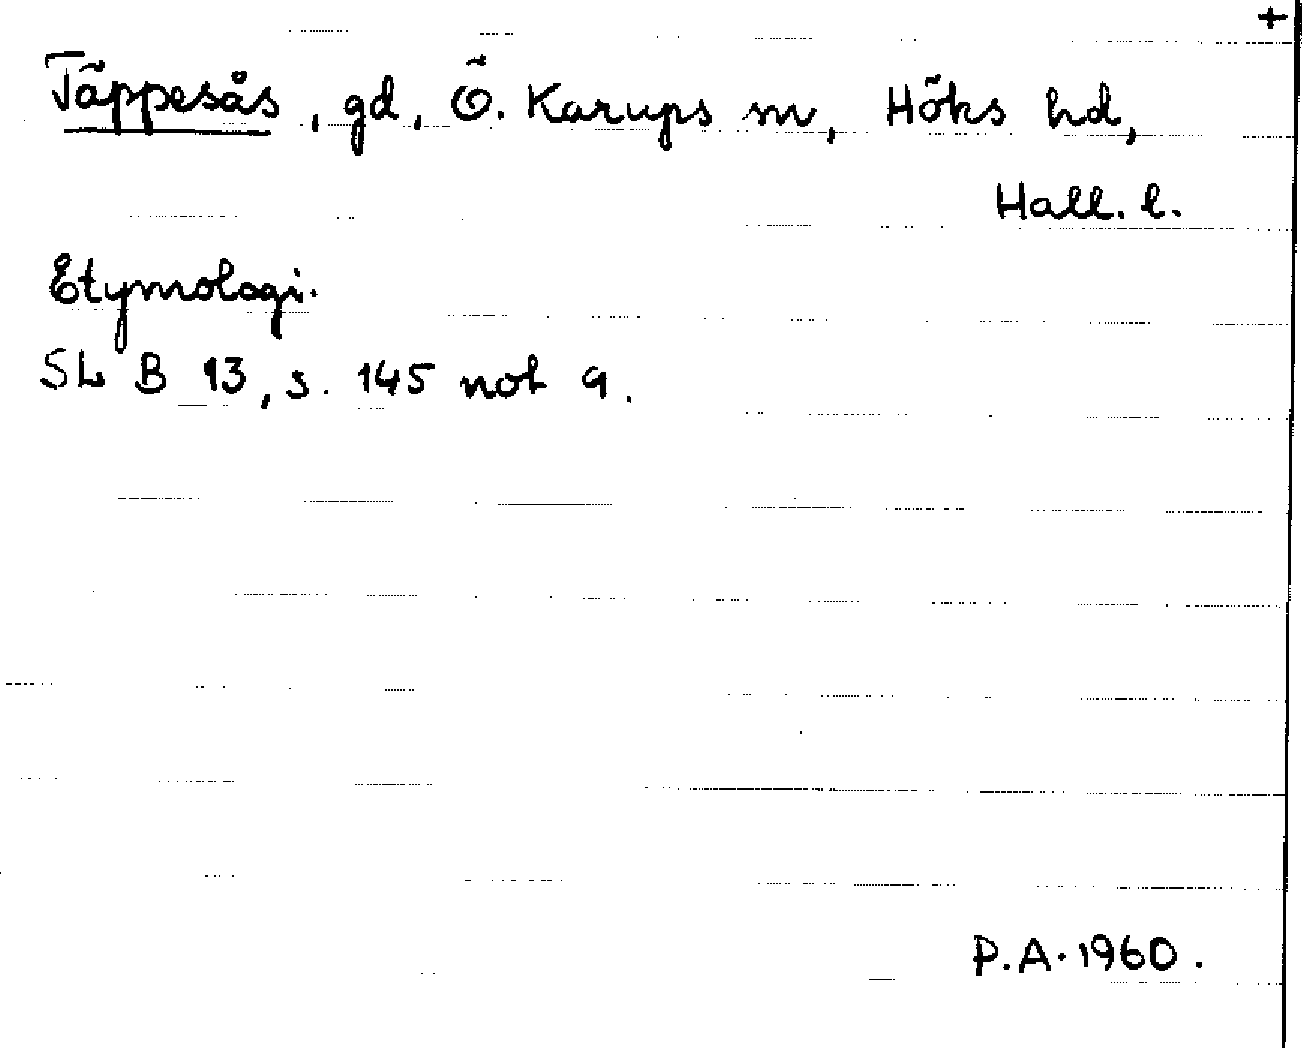 +
Täppesås, gd, Ö. Karups sn, Höks hd,
Hall. l.
Etymologi.
SL B 13, s. 145 not 9.
P.A. 1960.